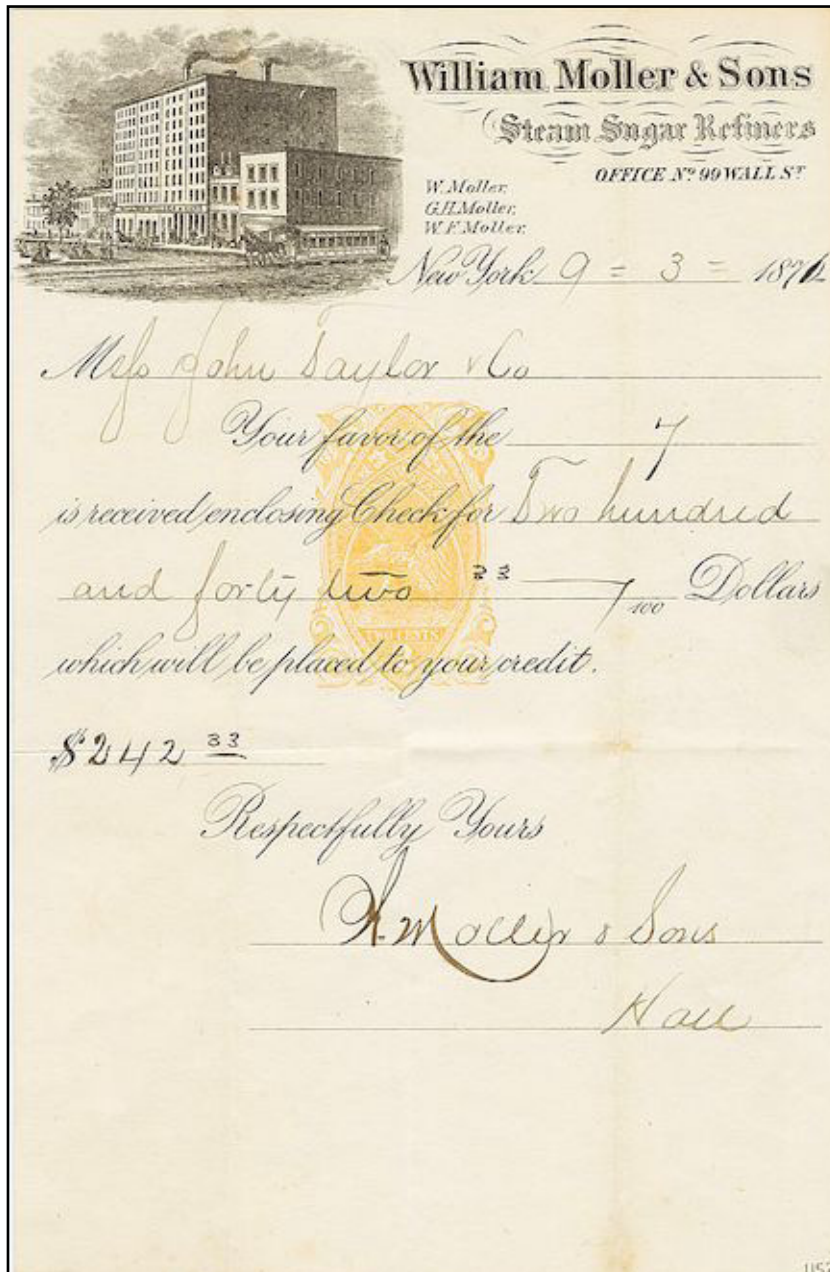 William Moller & Sons
Steam Sugar Refiners
OFFICE Nº 99 WALL ST
W. Moller,
G.H. Moller,
W. F. Moller.
New York 9 = 3 = 187
Mess John Taylor & Co
Your favor of the 7
is received enclosing Check for Two hundred
and forty two 33 /100 Dollars
which will be placed to your credit.
TWO CENTS
$242 33
Respectfully Yours
W. Moller & Sons
Hall